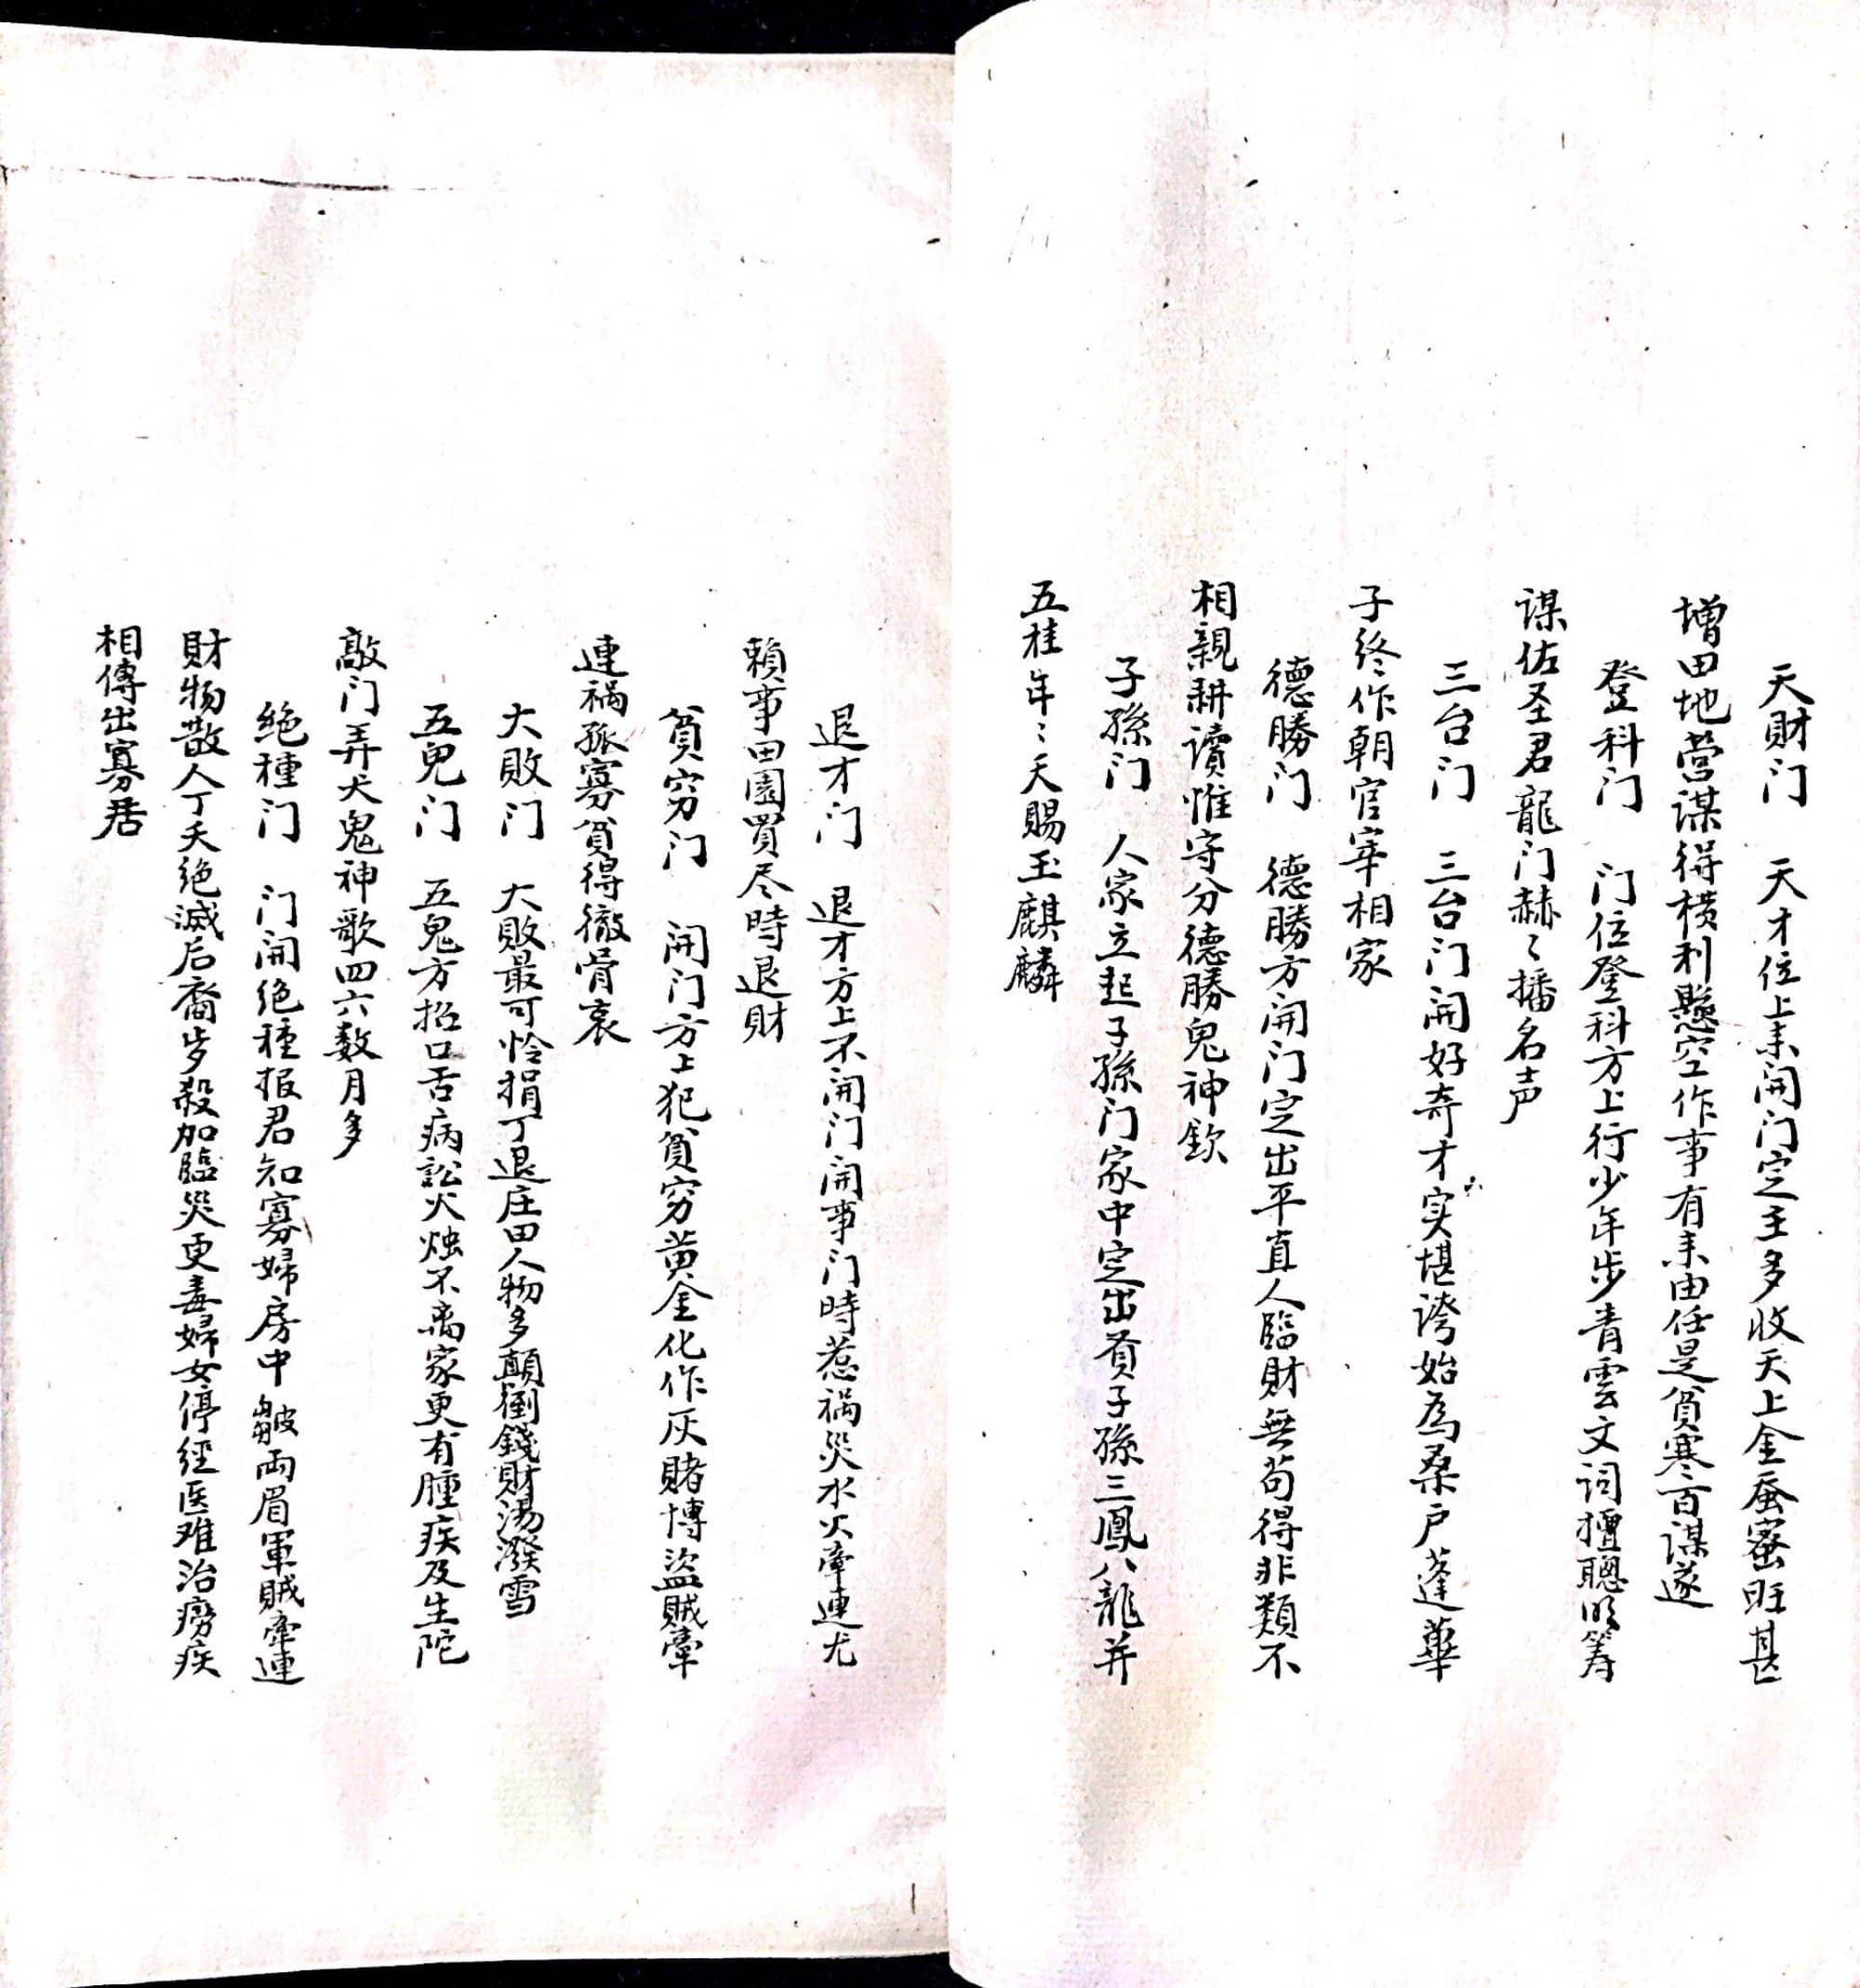 天財门 天才位上未開门定主多收天上金蚕蜜旺甚
增田地营谋得横利懸空作事有未由任是貧寒百谋遂
登科门 门位登科方上行少年步青雲文词擅聰明筹
谋佐圣君龍门赫々播名声
三台门 三台门開好奇才实堪誇始為桑户蓬蓽
子终作朝官宰相家
德勝门 德勝方開门定出平直人臨財無苟得非類不
相親耕讀惟守分德勝鬼神欽
子孫门 人家立起子孫门家中定出賁子孫三鳳八龍并
五桂年々天賜玉麒麟
退才门 退才方上不開门開事门時惹禍災水火牽連尤
賴事田園買尽時退財
貧穷门 開门方上犯貧穷黄金化作灰賭博盜賊牽
連禍孤寡貧得徹骨哀
大敗门 大敗最可怜捐丁退庄田人物多顛倒錢財湯潑雪
五鬼门 五鬼方招口舌病訟火烛不离家更有腫疾及生陀
敲门弄犬鬼神歌四六数月多
绝種门 门開绝種报君知寡婦房中皺両眉軍賊牽連
財物散人丁夭绝滅后裔歩殺加臨災更毒婦女停經医难治癆疾
相傳出寡居